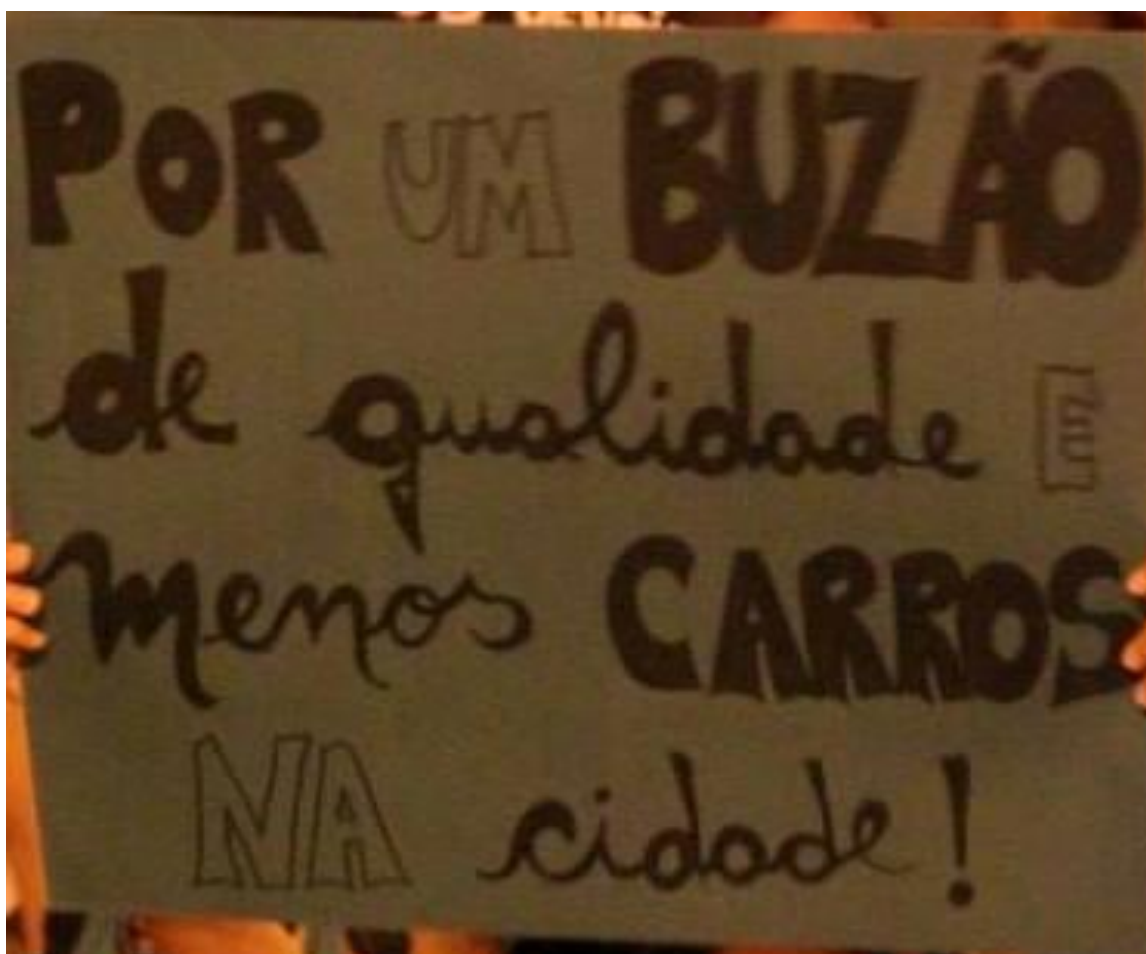 POR UM BUZÃO
de qualidade E
menos CARROS
NA cidade!